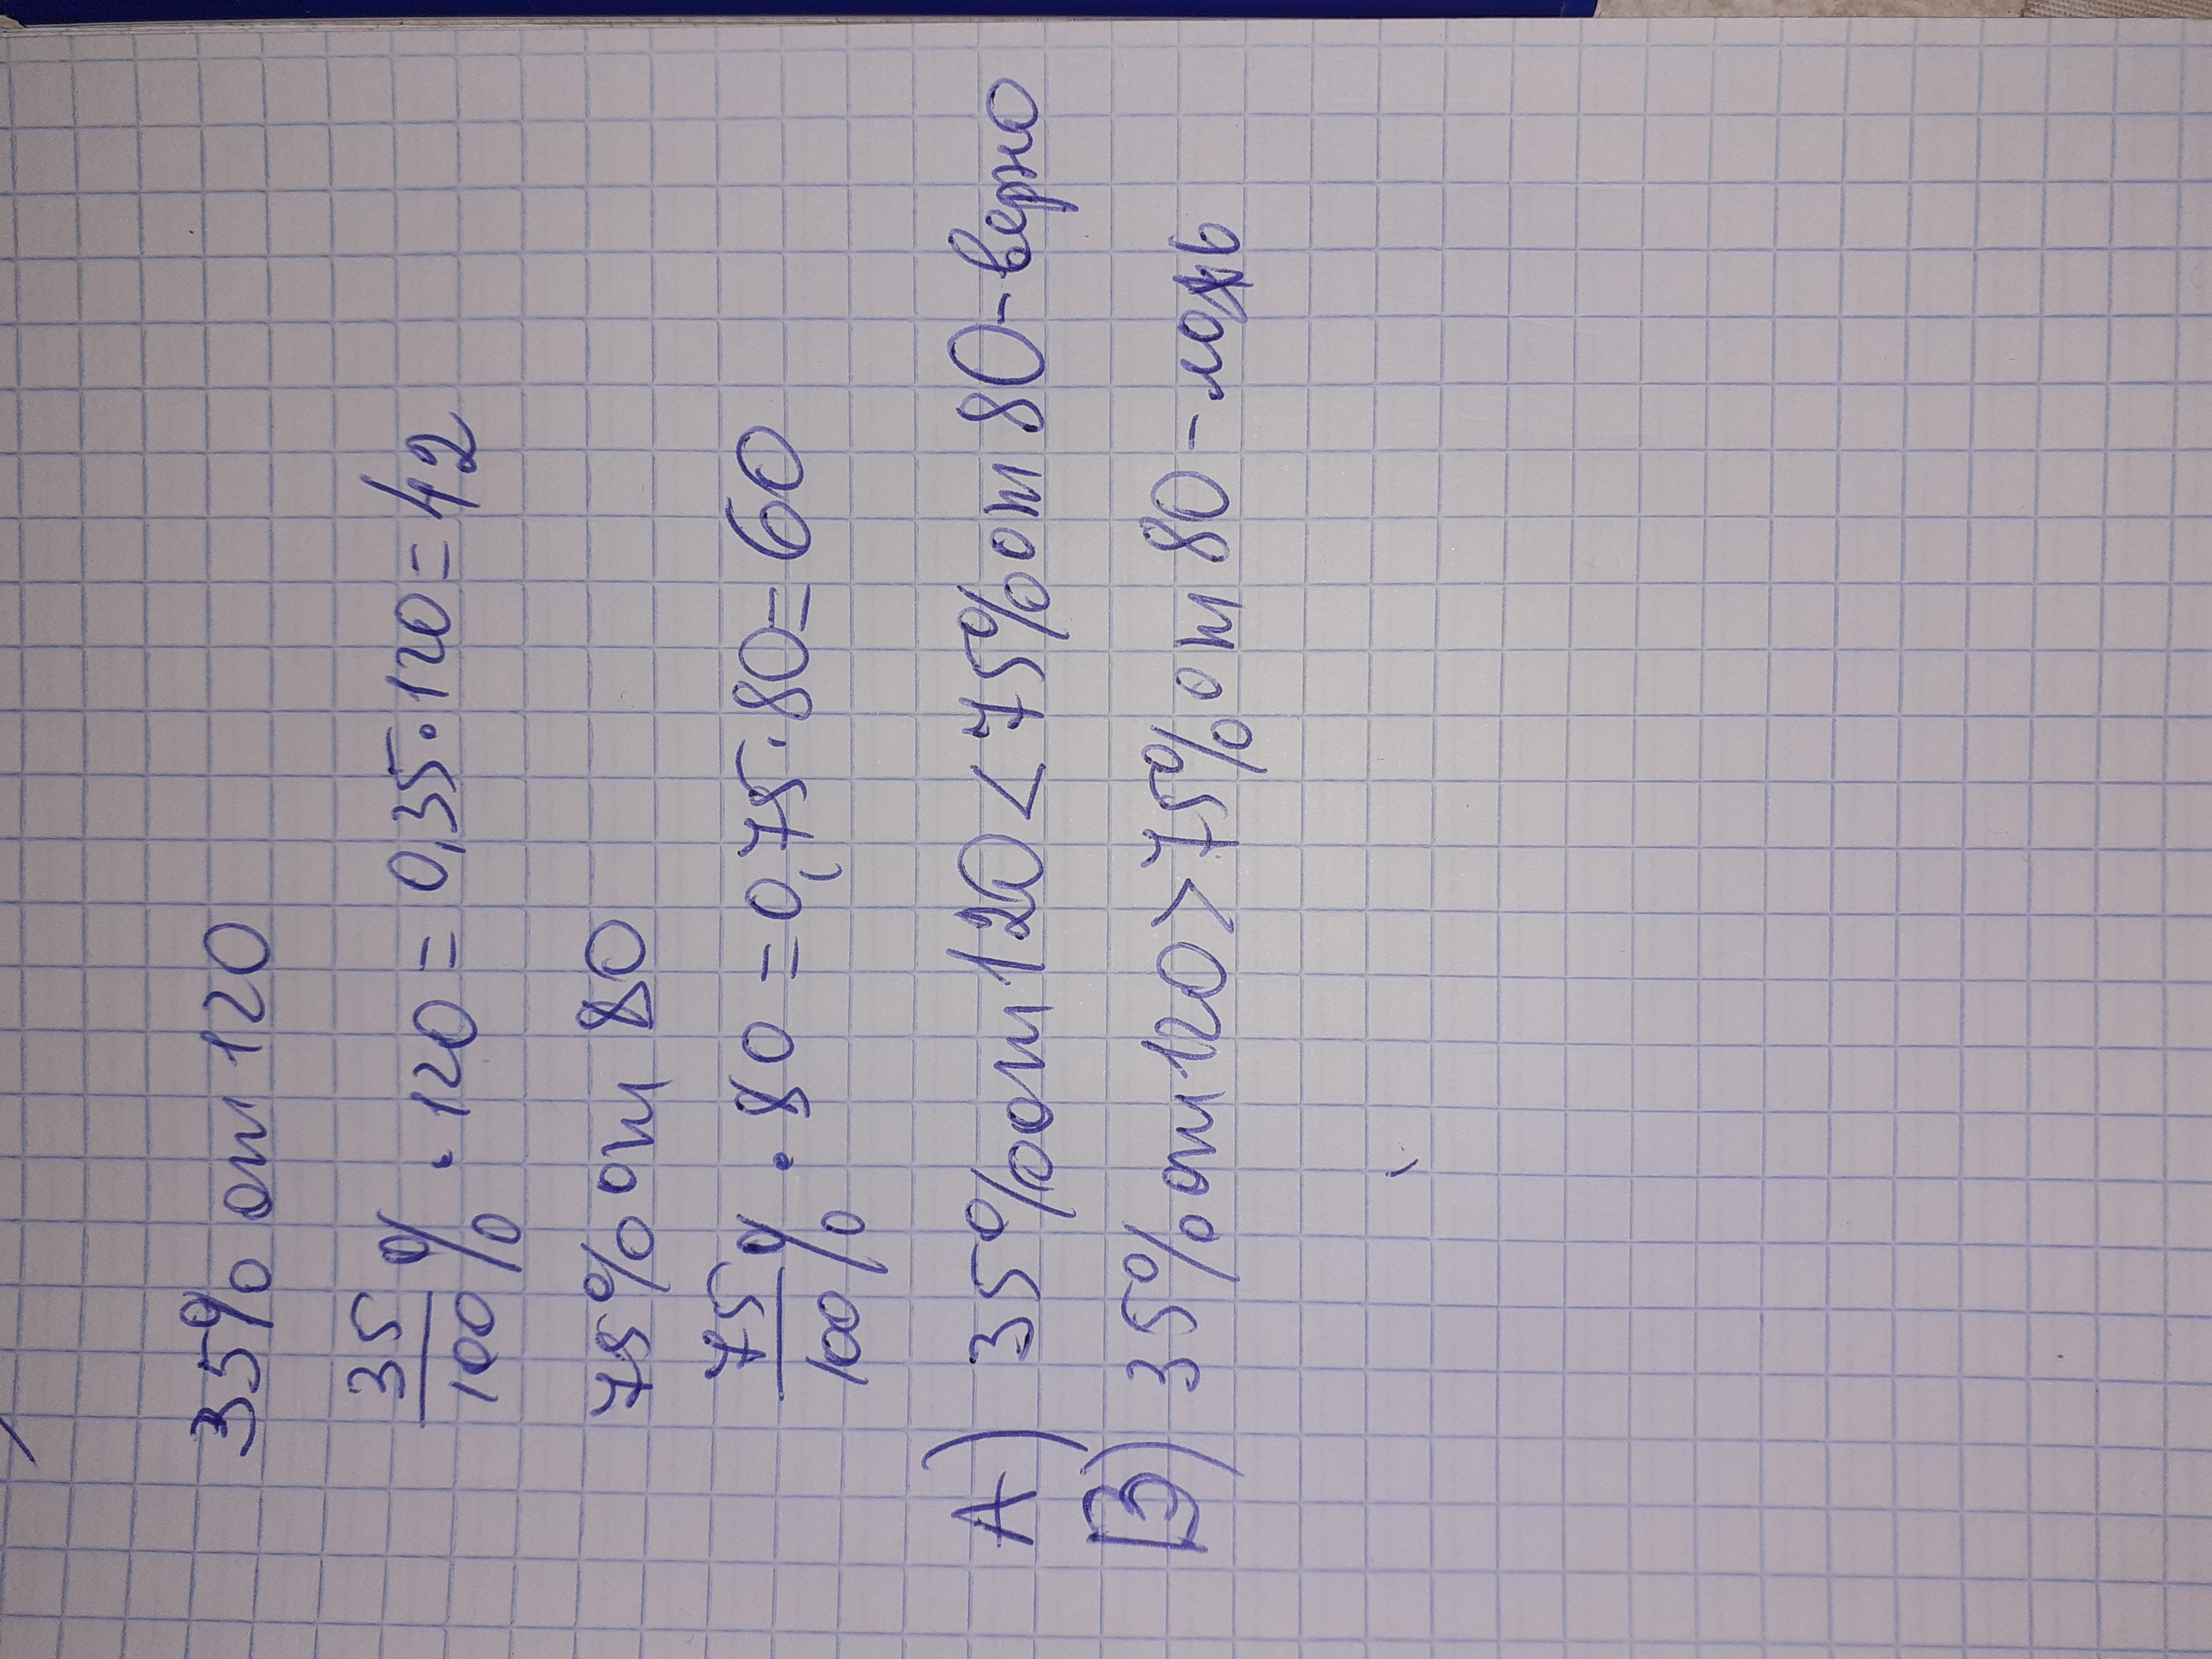 35% от 120
35%/100% · 120 = 0,35 · 120 = 42
75% от 80
75%/100% · 80 = 0,75 · 80 = 60
А) 35% от 120 < 75% от 80 - верно
В) 35% от 120 > 75% от 80 - ложь